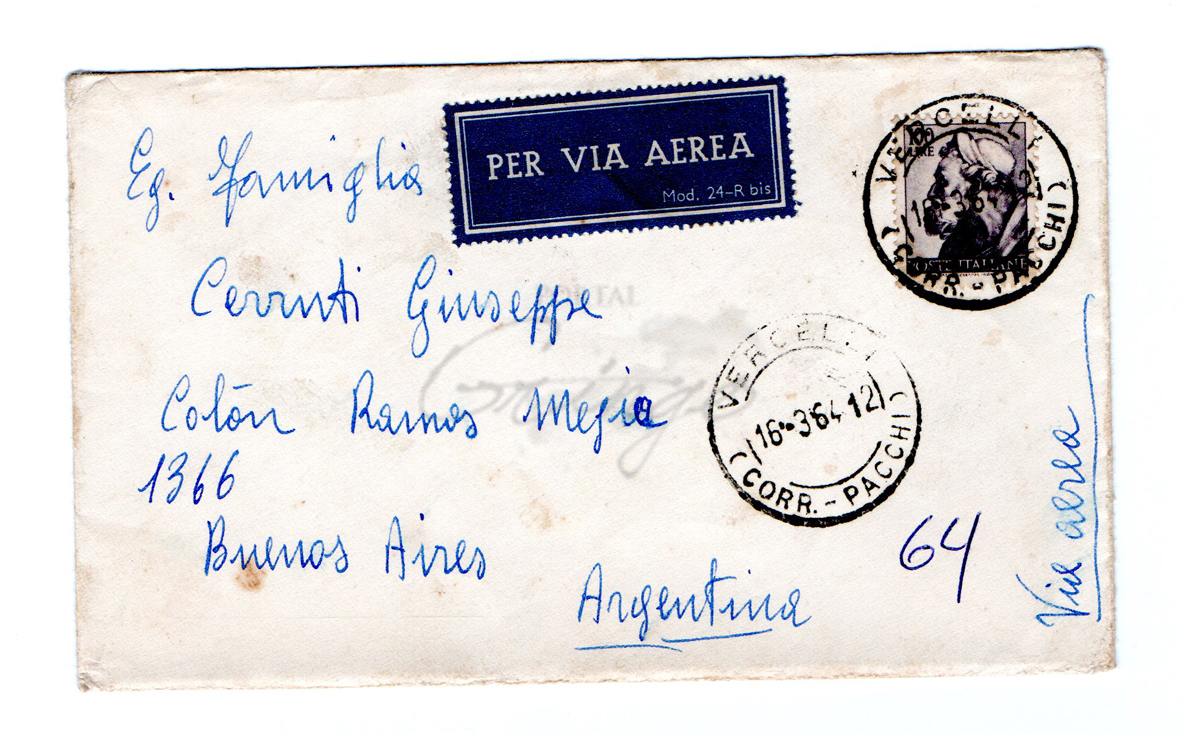 Eg. Famiglia
Cerruti Giuseppe
Colón Ramos Mejia
1366
Buenos Aires
Argentina
PER VIA AEREA
Mod. 24-R bis
100
LIRE
POSTE ITALIANE
VERCELLI
16-3 64 12
(CORR.-PACCHI)
VERCELLI
16-3 64 12
(CORR.-PACCHI)
64
Via aerea
PORTAL
Gringo